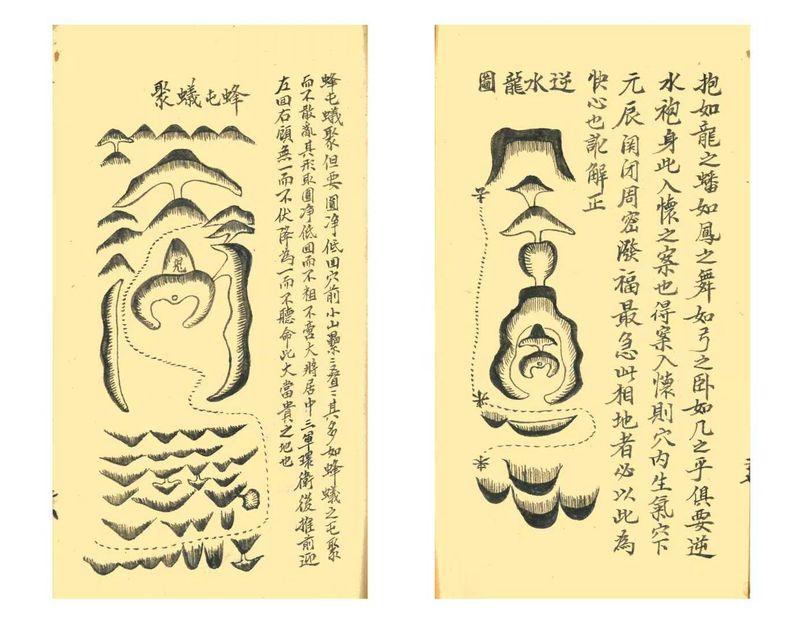 抱如龍之蟠如鳳之舞如弓之卧如几之平俱要逆
水袍身此入懷之案也得案入懷則穴内生氣穴下
元辰関闭周密潑福最急此相地者必以此為
快心也訛解正
逆水龍圖
去
來
來
蜂屯蟻聚但要圓净低田穴前小山纍〻疊〻其多如蜂蟻之屯聚
而不散亂其形取圓净低回而不粗不蠢大將居中三軍環衛後推前迎
左回右顧無一而不伏降為一而不聽命此大當貴之地也
蜂屯蟻聚
鬼